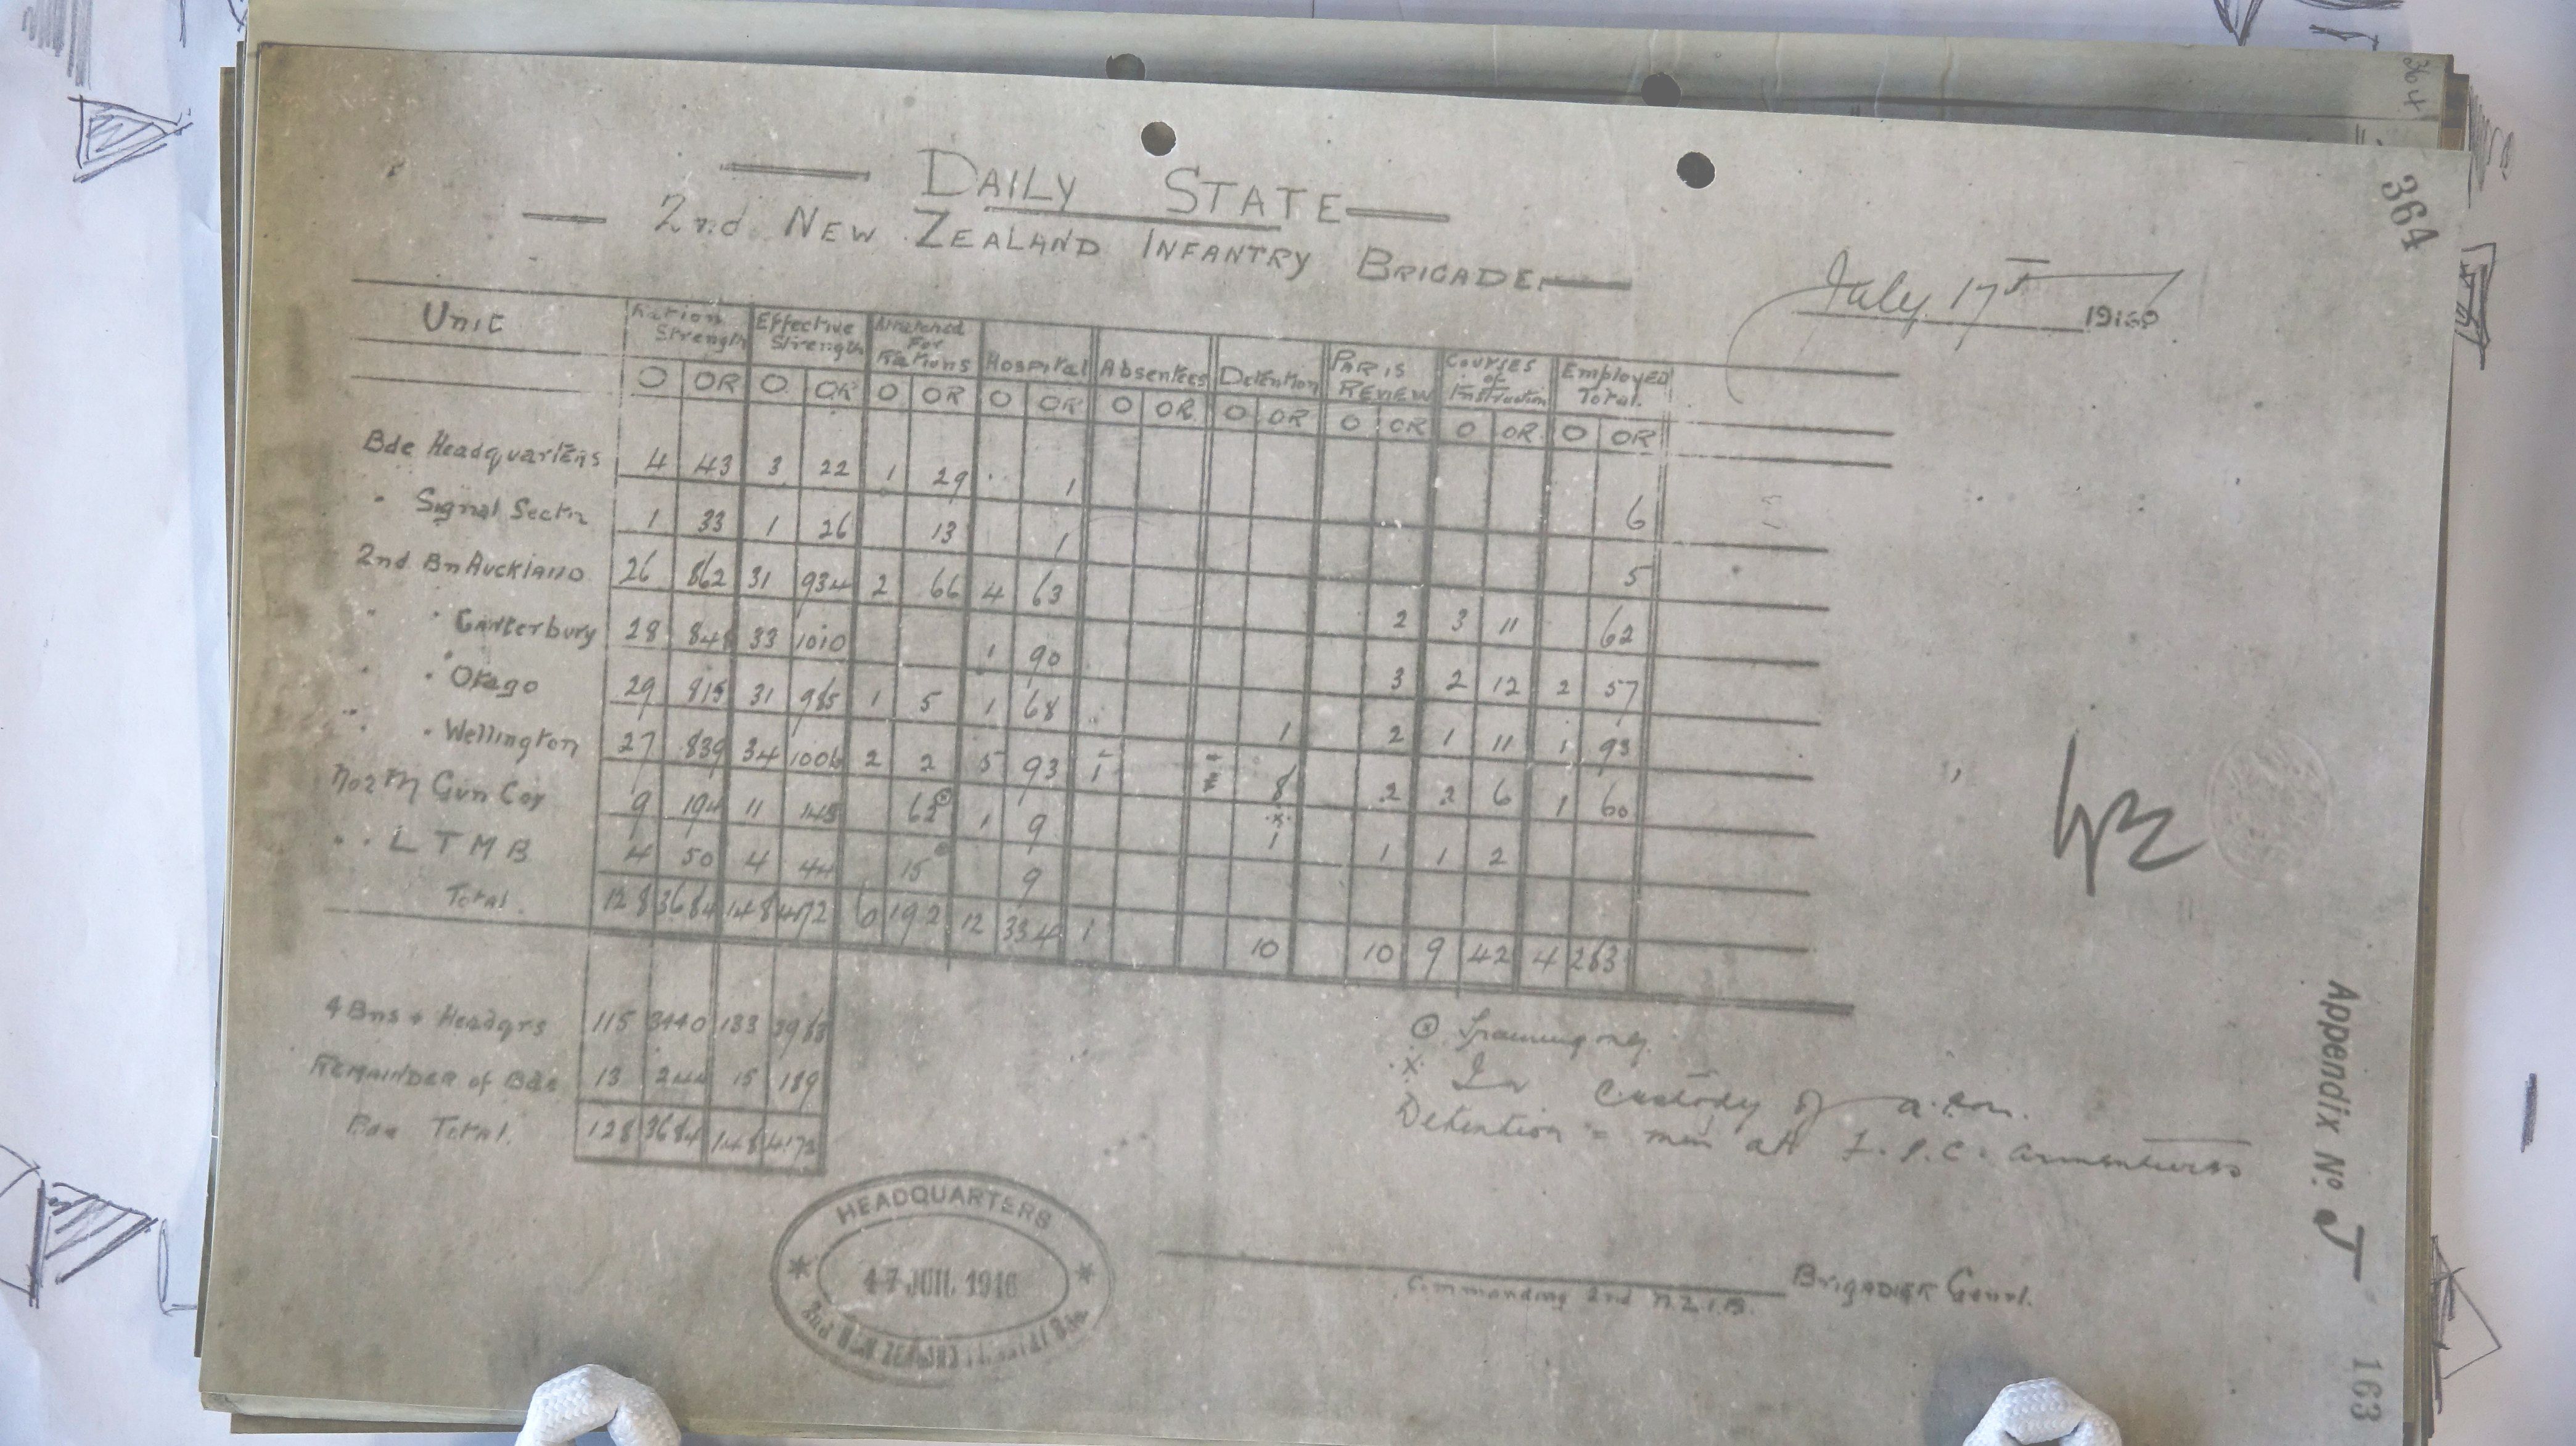 364
DAILY STATE
2nd NEW ZEALAND INFANTRY BRIGADE.
July 17th 1916
Unit Ration Strength Effective Strength Attached For Rations Hospital Absentees Detention PARIS REVIEW Courses of Instruction Employed Total.
O OR O OR O OR O OR O OR O OR O OR O OR O OR
Bde Headquarters 4 43 3 22 1 29 1 6
" Signal Sectn 1 33 1 26 13 1 5
2nd Bn Auckland 26 862 31 934 2 66 4 63 2 3 11 62
" " Canterbury 28 848 33 1010 1 90 3 2 12 2 57
" " Otago 29 815 31 985 1 5 1 68 1 2 1 11 1 93
" " Wellington 27 839 34 1006 2 2 5 93 1 8 2 2 6 1 60
No 2 M Gun Coy 9 194 11 145 62 1 9 1 1 1 2
" " L T M B 4 50 4 44 15 9
Total 128 3684 148 4172 6 192 12 334 1 10 10 9 42 4 283
4 Bns + Headqrs 115 3440 133 3983
REMAINDER of Bde 13 244 15 189
Bde Total. 128 3684 148 4172
⊙ Training only.
x In Custody of a.
Detention = men at F.P.C. Armentieres
HEADQUARTERS
17 JUIL 1916
BRIGADIER Genrl.
Commanding 2nd N.Z.I.B.
Appendix No. J
163
364